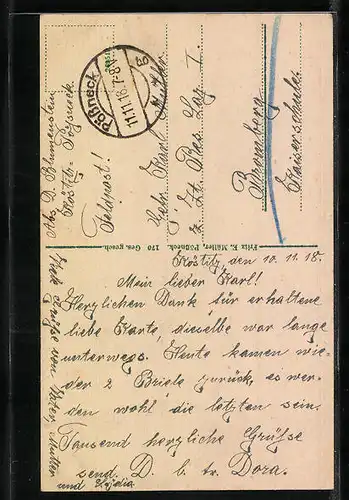 Abs. D. Blumenstein
Köstitz-Pößneck.
Pößneck
11.11.18. 7-8V
Feldpost!
Karl
z. Zt. Res. Laz. I.
Bromberg
Kaiserschule
Fritz E. Müller, Pößneck. 170 Ges. gesch.
Köstitz, den 10.11.18.
Mein lieber Karl!
Herzlichen Dank für erhaltene
liebe Karte, dieselbe war lange
unterwegs. Heute kamen wie-
der 2 Briefe zurück, es wer-
den wohl die letzten sein.
Tausend herzliche Grüße
send. D. b. tr. Dora.
Viele Grüße von Vater, Mutter
und Lydia